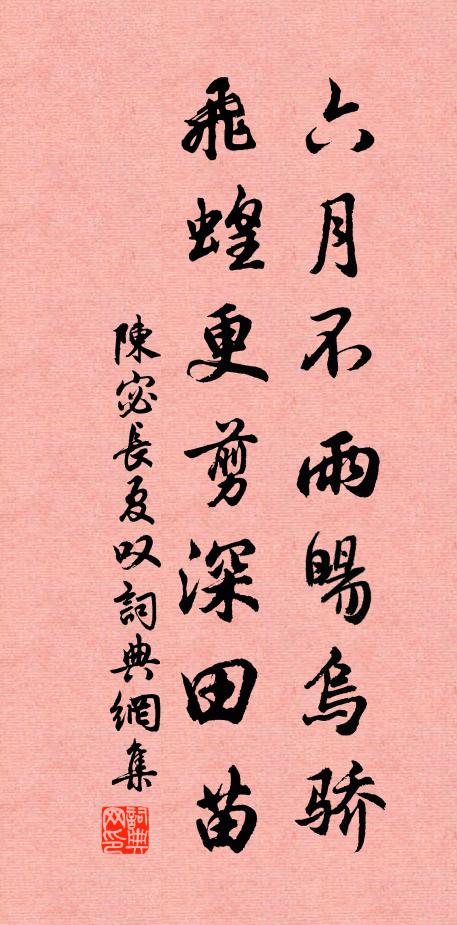 六月不雨暘烏骄
飛蝗更剪深田苗
陳宓長夏叹詞典網集
詞典网印